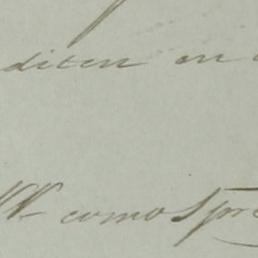 dicen en
como Spre